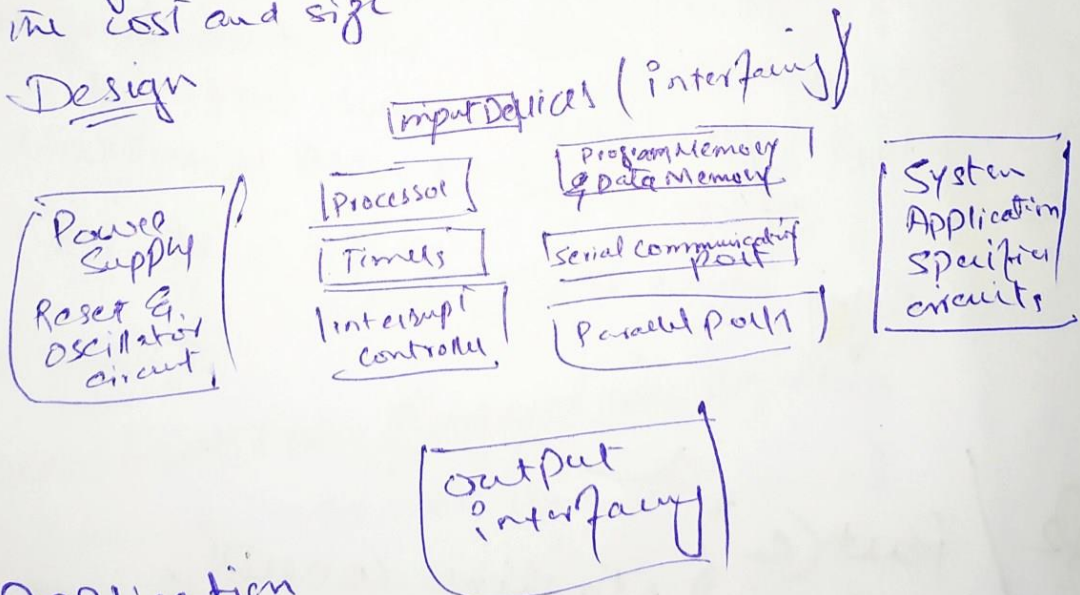 the cost and size
Design
Input Devices (interfacing)
Power
Supply
Reset &
oscillator
circuit
Processor
Timers
Interrupt
Controller
Program Memory
& Data Memory
Serial Communication
port
Parallel Ports
System
Application
Specific
circuits
output
interfacing
Application